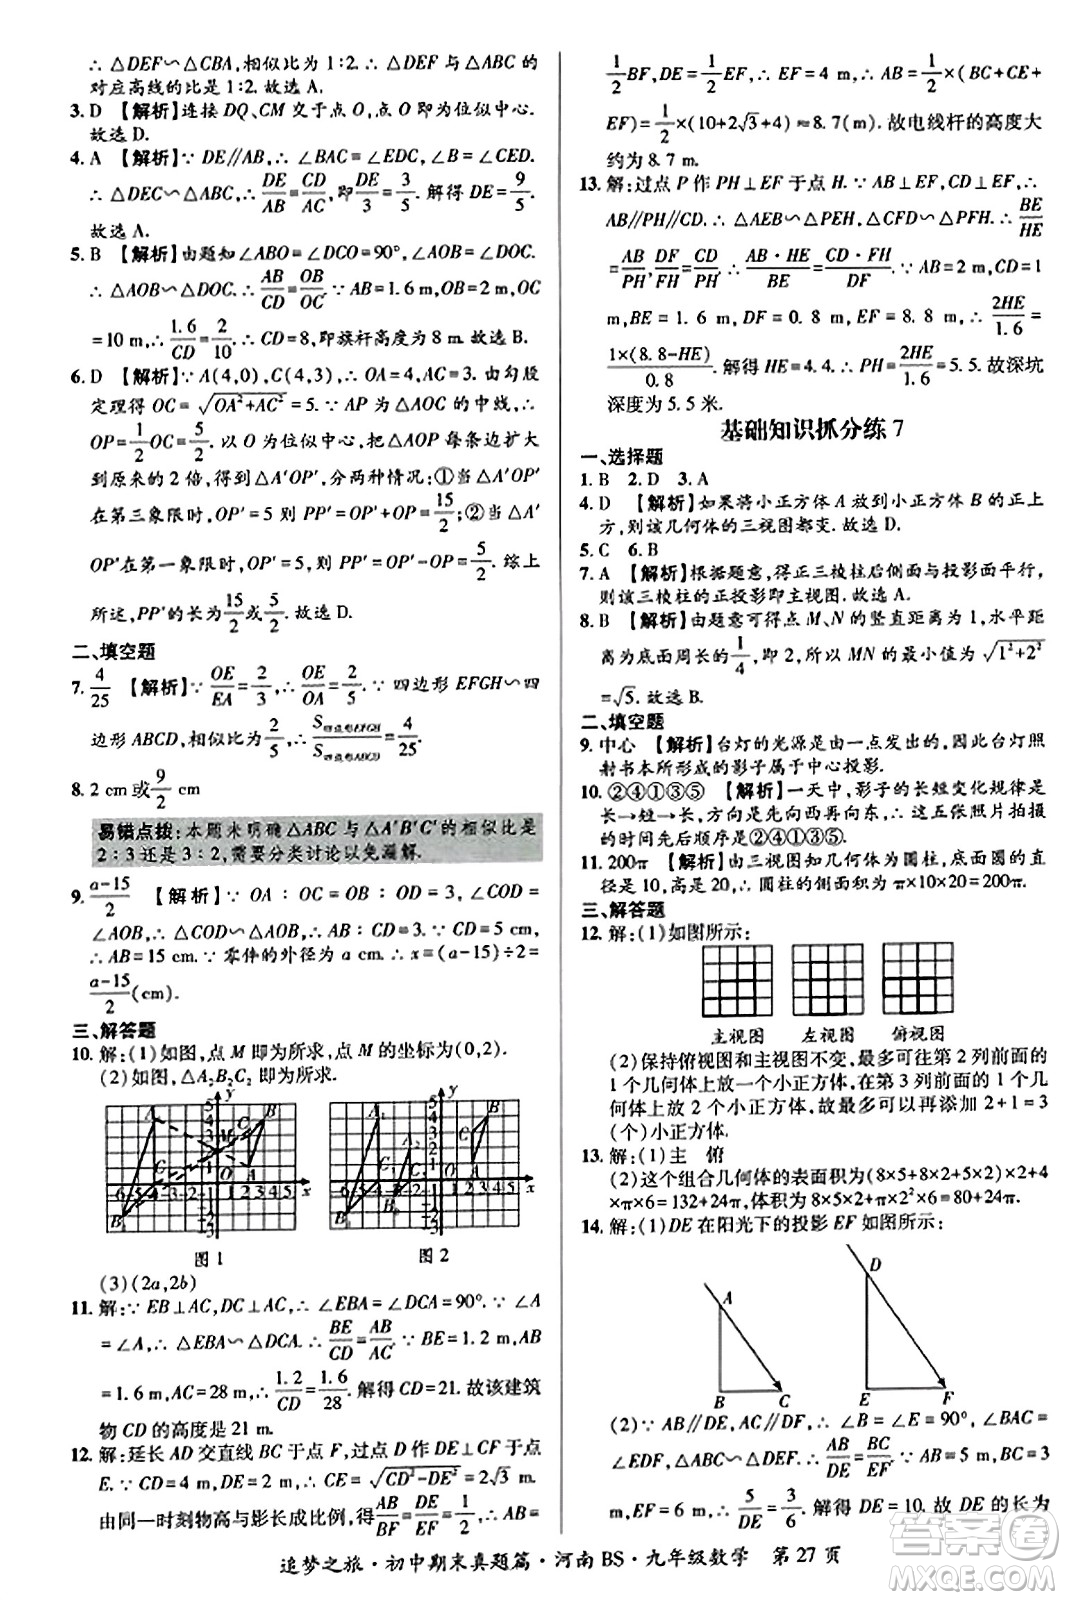 ∴ △DEF∽△CBA,相似比为 1∶2.∴ △DEF 与 △ABC 的
对应高线的比是 1∶2.故选 A.
3. D 【解析】连接 DQ,CM 交于点 O,点 O 即为位似中心.
故选 D.
4. A 【解析】∵ DE∥AB,∴ ∠BAC = ∠EDC,∠B = ∠CED.
∴ △DEC∽△ABC,∴ DE/AB = CD/AC,即 DE/3 = 3/5. 解得 DE = 9/5.
故选 A.
5. B 【解析】由题知 ∠ABO = ∠DCO = 90°,∠AOB = ∠DOC.
∴ △AOB∽△DOC.∴ AB/CD = OB/OC.∵ AB = 1.6 m,OB = 2 m,OC
= 10 m,∴ 1.6/CD = 2/10.∴ CD = 8,即旗杆高度为 8 m.故选 B.
6. D 【解析】∵ A(4,0),C(4,3),∴ OA = 4,AC = 3.由勾股
定理得 OC = √(OA²+AC²) = 5.∵ AP 为 △AOC 的中线,∴
OP = 1/2 OC = 5/2. 以 O 为位似中心,把 △AOP 每条边扩大
到原来的 2 倍,得到 △A′OP′,分两种情况:①当 △A′OP′
在第三象限时,OP′ = 5 则 PP′ = OP′+OP = 15/2;②当 △A′
OP′在第一象限时,OP′ = 5,则 PP′ = OP′−OP = 5/2. 综上
所述,PP′的长度为 15/2 或 5/2. 故选 D.
二、填空题
7. 4/25 【解析】∵ OE/EA = 2/3,∴ OE/OA = 2/5.∵ 四边形 EFGH∽四
边形 ABCD,相似比为 2/5,∴ S四边形EFGH/S四边形ABCD = 4/25.
8. 2 cm 或 9/2 cm
易错点拨:本题未明确 △ABC 与 △A′B′C′的相似比是
2∶3 还是 3∶2,需要分类讨论以免漏解.
9. (a−15)/2 【解析】∵ OA∶OC = OB∶OD = 3,∠COD =
∠AOB,∴ △COD∽△AOB.∴ AB∶CD = 3.∵ CD = 5 cm,
∴ AB = 15 cm.∵ 零件的外径为 a cm,∴ x = (a−15)÷2 =
(a−15)/2 (cm).
三、解答题
10. 解:(1)如图,点 M 即为所求,点 M 的坐标为(0,2).
(2)如图,△A₂B₂C₂ 即为所求.
图 1 图 2
(3)(2a,2b)
11. 解:∵ EB⊥AC,DC⊥AC,∴ ∠EBA = ∠DCA = 90°.∵ ∠A
= ∠A,∴ △EBA∽△DCA.∴ BE/CD = AB/AC.∵ BE = 1.2 m,AB
= 1.6 m,AC = 28 m,∴ 1.2/CD = 1.6/28.解得 CD = 21.故该建筑
物 CD 的高度是 21 m.
12. 解:延长 AD 交直线 BC 于点 F,过点 D 作 DE⊥CF 于点
E.∵ CD = 4 m,DE = 2 m,∴ CE = √(CD²−DE²) = 2√3 m.
由同一时刻物高与影长成比例,得 AB/BF = DE/EF = 1/2,∴ AB =
1/2 BF,DE = 1/2 EF,∴ EF = 4 m,∴ AB = 1/2×(BC+CE+
EF) = 1/2×(10+2√3+4) ≈ 8.7(m).故电线杆的高度大
约为 8.7 m.
13. 解:过点 P 作 PH⊥EF 于点 H.∵ AB⊥EF,CD⊥EF,∴
AB∥PH∥CD,∴ △AEB∽△PEH,△CFD∽△PFH.∴ BE/HE
= AB/PH,DF/HF = CD/PH.∴ AB·HE/BE = CD·FH/DF.∵ AB = 2 m,CD = 1
m,BE = 1.6 m,DF = 0.8 m,EF = 8.8 m,∴ 2HE/1.6 =
1×(8.8−HE)/0.8.解得 HE = 4.4.∴ PH = 2HE/1.6 = 5.5.故深坑
深度为 5.5 米.
基础知识抓分练 7
一、选择题
1. B 2. D 3. A
4. D 【解析】如果将小正方体 A 放到小正方体 B 的正上
方,则该几何体的三视图都变.故选 D.
5. C 6. B
7. A 【解析】根据题意,得正三棱柱后侧面与投影面平行,
则该三棱柱的正投影即主视图.故选 A.
8. B 【解析】由题意可得点 M、N 的竖直距离为 1,水平距
离为底面周长的 1/4,为 2,所以 MN 的最小值为 √(1²+2²)
= √5.故选 B.
二、填空题
9. 中心 【解析】台灯的光源是由一点发出的,因此台灯照
射书本所形成的影子属于中心投影.
10. ②④①③⑤ 【解析】一天中,影子的长短变化规律是
长→短→长,方向是由西向东,故这五张照片拍摄时间
的先后顺序是②④①③⑤.
11. 200π 【解析】由三视图知几何体为圆柱,底面圆的半径
为 10,高是 20,∴ 圆柱的侧面积为 π×10×20 = 200π.
三、解答题
12. 解:(1)如图所示:
主视图 左视图 俯视图
(2)保持俯视图和主视图不变,最多可往第 2 列前面的
1 个几何体上放一个小正方体,在第 3 列前面的 1 个几
何体上放 2 个小正方体,故最多可以再添加 2+1 = 3
(个)小正方体.
13. 解:(1)主 俯
(2)这个组合几何体的表面积为(8×5+8×2+5×2)×2+4
×π×6 = 132+24π,体积为 8×5×2+π×2²×6 = 80+24π.
14. 解:(1)DE 在阳光下的投影 EF 如图所示:
A D
B C E F
(2)∵ AB∥DE,AC∥DF,∴ ∠B = ∠E = 90°,∠BAC =
∠EDF,∴ △ABC∽△DEF.∴ AB/DE = BC/EF.∵ AB = 5 m,BC = 3
m,EF = 6 m,∴ 5/DE = 3/6. 解得 DE = 10. 故 DE 的长为
追梦之旅·初中期末真题篇·河南 BS·九年级数学 第 27 页